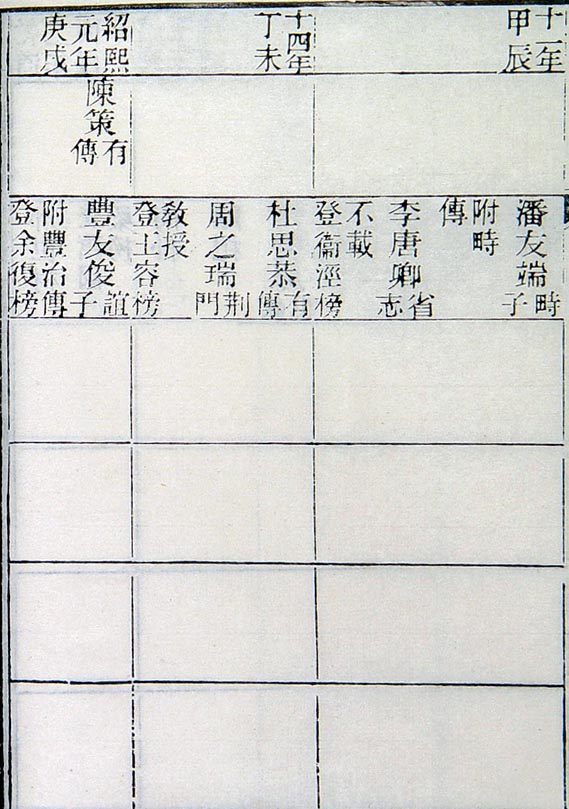 十一年
甲辰
潘友端時子
附時
傳
李唐卿省志
不載
登衞涇榜
十四年
丁未
杜思恭有傳
周之瑞荆門
敎授
登王容榜
紹熙
元年
庚戌
陳策有傳
豐友俊誼子
附豐治傳
登余復榜